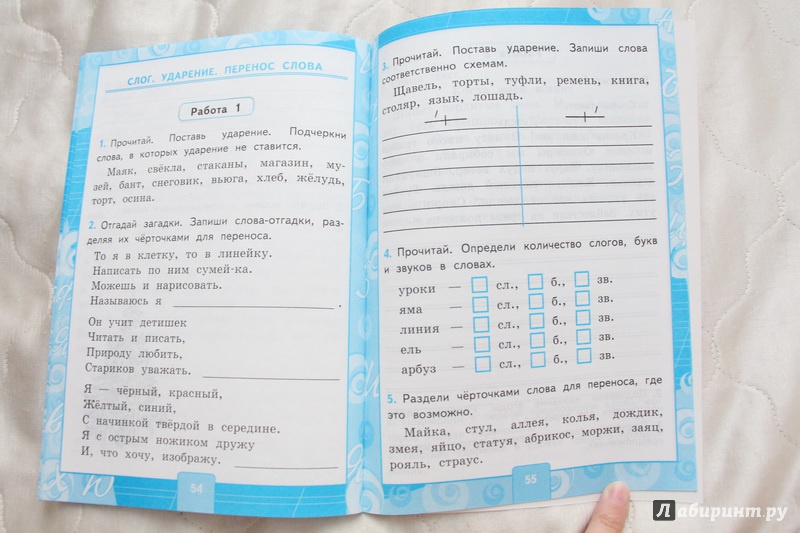 СЛОГ. УДАРЕНИЕ. ПЕРЕНОС СЛОВА
Работа 1
1. Прочитай. Поставь ударение. Подчеркни
слова, в которых ударение не ставится.
Маяк, свёкла, стаканы, магазин, му-
зей, бант, снеговик, вьюга, хлеб, жёлудь,
торт, осина.
2. Отгадай загадки. Запиши слова-отгадки, раз-
деляя их чёрточками для переноса.
То я в клетку, то в линейку.
Написать по ним сумей-ка.
Можешь и нарисовать.
Называюсь я .
Он учит детишек
Читать и писать,
Природу любить,
Стариков уважать.
Я — чёрный, красный,
Жёлтый, синий,
С начинкой твёрдой в середине.
Я с острым ножиком дружу
И, что хочу, изображу.
54
3. Прочитай. Поставь ударение. Запиши слова
соответственно схемам.
Щавель, торты, туфли, ремень, книга,
столяр, язык, лошадь.
4. Прочитай. Определи количество слогов, букв
и звуков в словах.
уроки — сл., б., зв.
яма — сл., б., зв.
линия — сл., б., зв.
ель — сл., б., зв.
арбуз — сл., б., зв.
5. Раздели чёрточками слова для переноса, где
это возможно.
Майка, стул, аллея, колья, дождик,
змея, яйцо, статуя, абрикос, моржи, заяц,
рояль, страус.
55
Лабиринт.ру